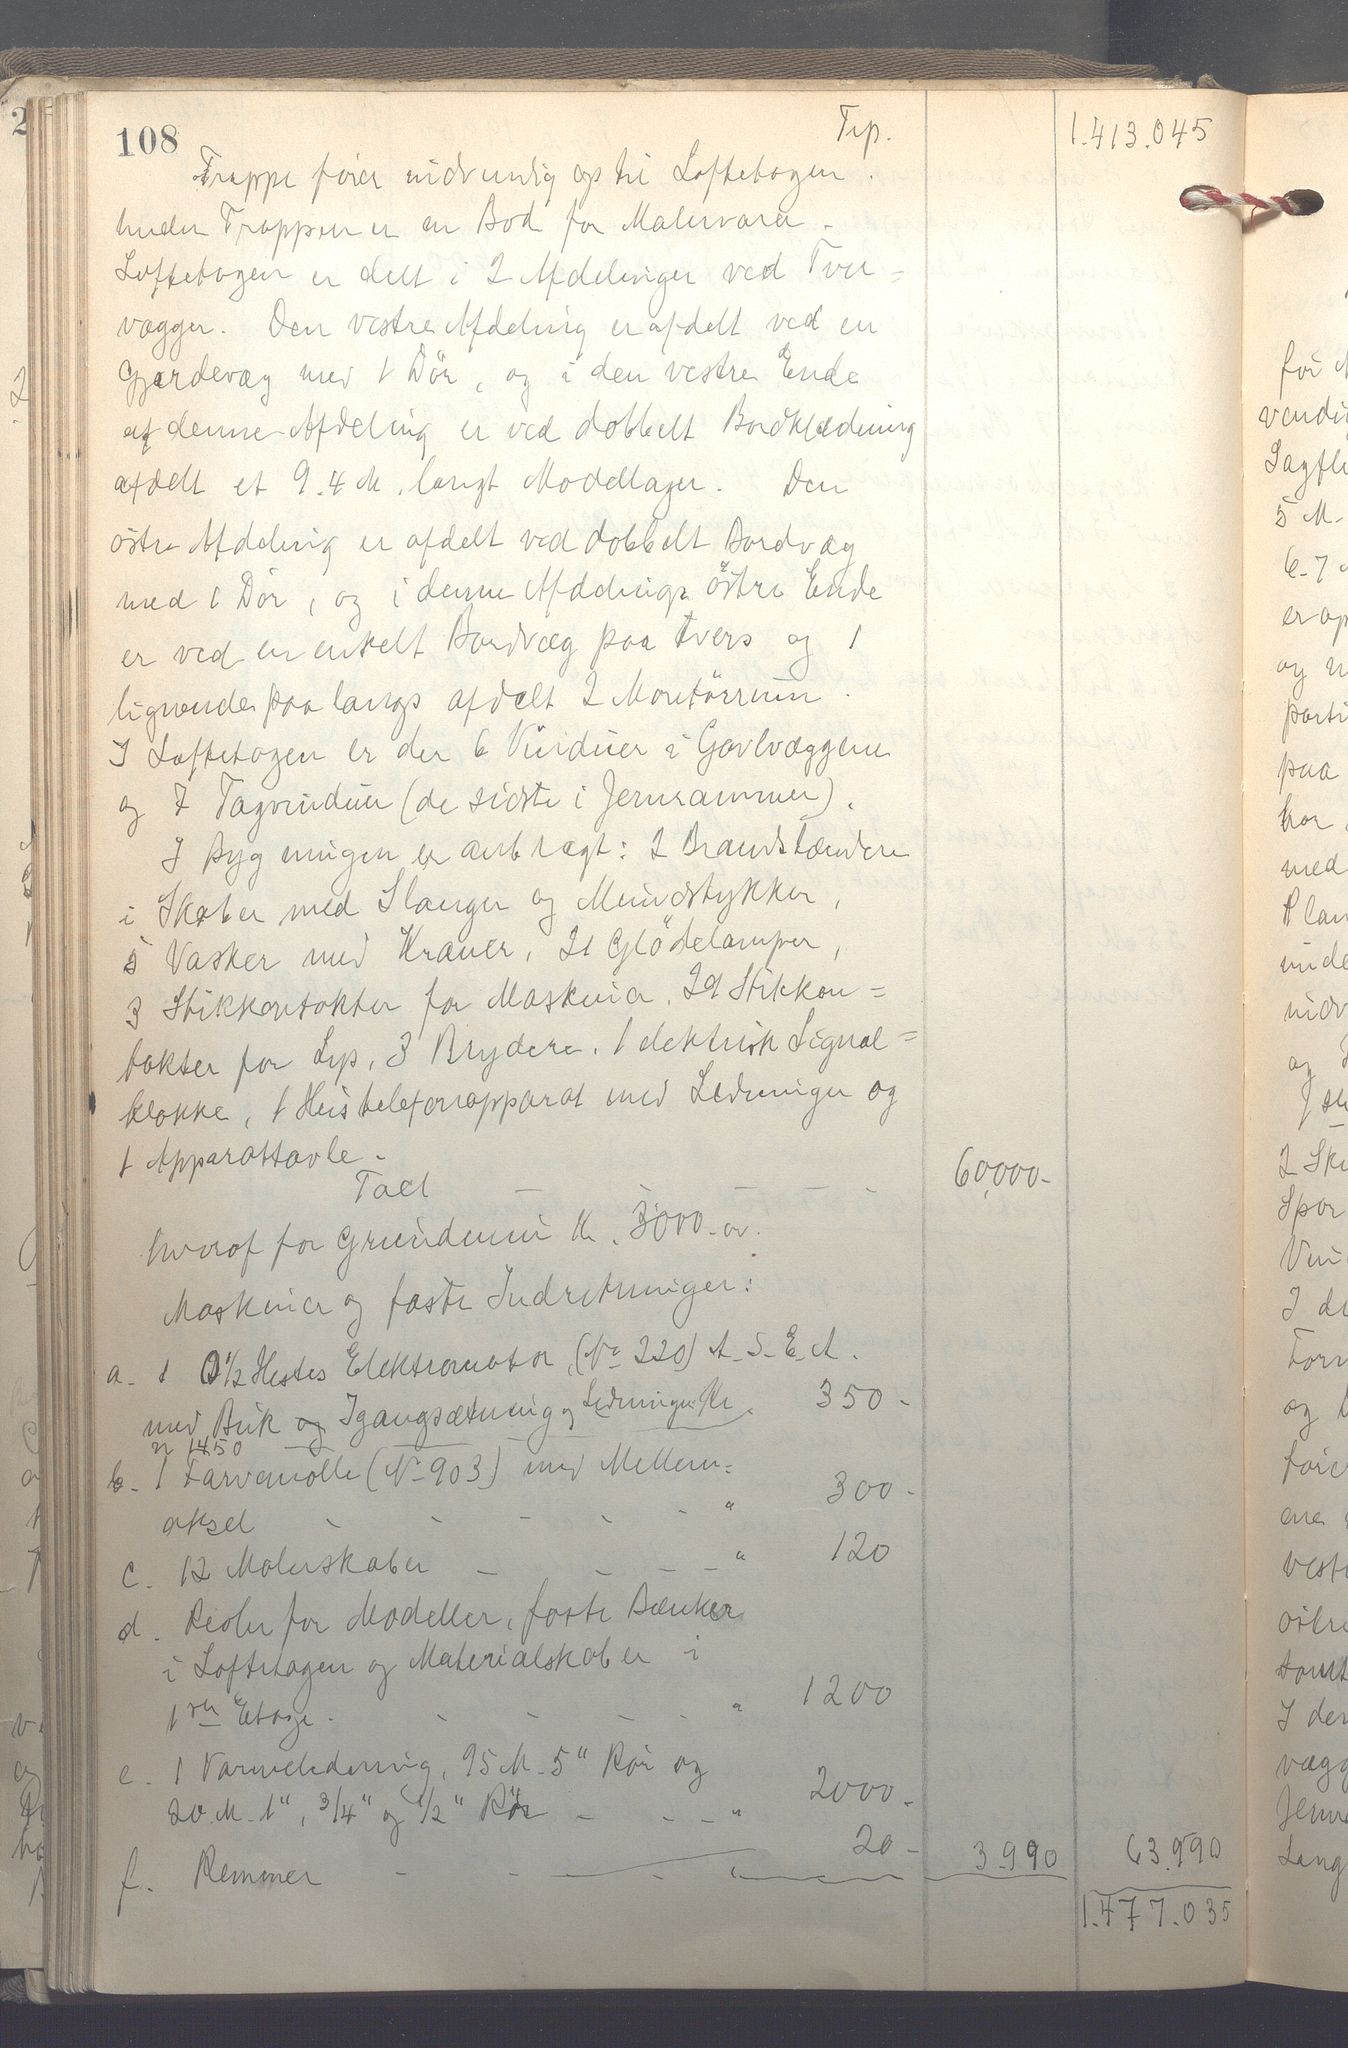 108
Trp. 1.413.045
Trappe förer nidvendig op til Loftetagen.
Under Trappen er en Bod for Malervarer.
Loftetagen er delt i 2 Afdelinger ved Tver=
vægger. Den vestre Afdeling er afdelt ved en
Gjærdevæg med 1 Dör, og i den vestre Ende
af denne Afdeling er ved dobbelt Bordklædning
afdelt et 9.4 M. langt Modellager. Den
östre Afdeling er afdelt ved dobbelt Bordvæg
med 1 Dör, og i denne Afdelings östre Ende
er ved en enkelt Bordvæg paa tvers og 1
lignende paa langs afdelt 2 Montörrum.
I Loftetagen er der 6 Vinduer i Gavlvæggene
og 7 Tagvinduer (de sidste i Jernrammer).
I Bygningen er anbragt: 2 Brandstændere
i Skaber med Slanger og Mundstykker,
5 Vasker med Kraner, 21 Glödelamper,
3 Stikkontakter for Maskiner, 29 Stikkon=
takter for Lys, 3 Brydere, 1 elektrisk Signal=
klokke, 1 Hustelefonapparat med Ledninger og
1 Apparattavle.
Taxt 60,000-
hvoraf for Grundmur Kr. 3000.-
Maskiner og faste Indretninger:
a. 1 1/2 Hestes Elektromotor (No 220) A.S.E.A.
med Buk og Igangsætning og Ledninger Kr. 350-
n 1450
b. 1 Farvemölle (No 903) med Mellem=
aksel " 300-
c. 12 Malerskaber " 120
d. Reoler for Modeller, faste Bænker
i Loftetagen og Materialskaber i
1ste Etage. " 1200
e. 1 Varmeledning, 95 M. 5" Rör og
20 M. 1", 3/4" og 1/2" Rör " 2000-
f. Remmer " 20- 3.990 63.990
1.477.035